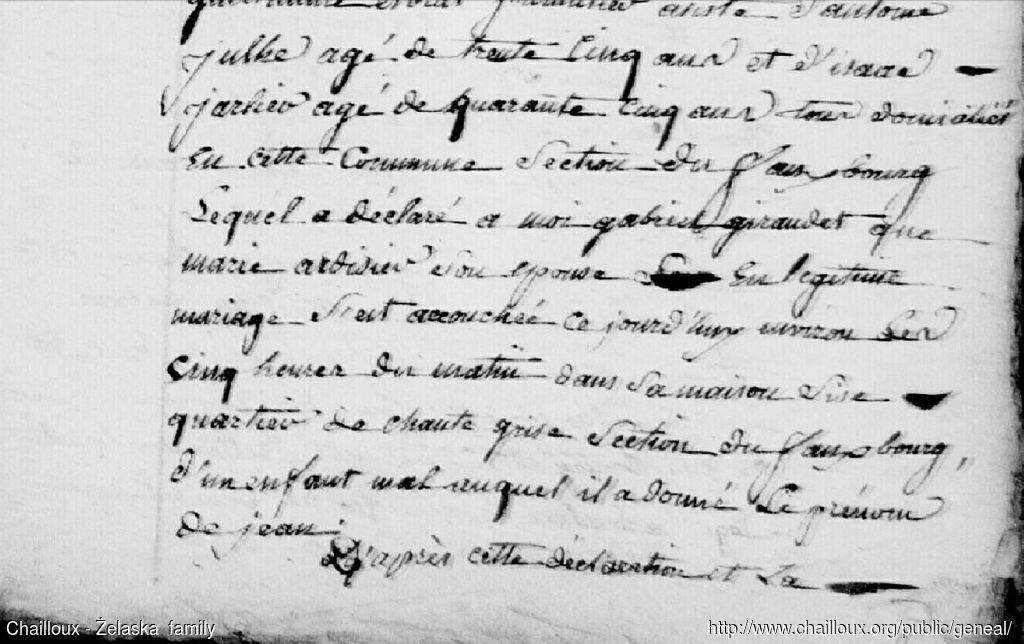 julhe agé de trente cinq ans et d'isaac
jarhier agé de quarante cinq ans tous domiciliés
en cette Commune Section du faux bourg
Lequel a déclaré a moi gabriel giraudet que
marie ardisier son epouse en legitime
mariage s'est accouchée ce jourd'huy environ les
cinq heures du matin dans sa maison sise
quartier de chante grise Section du faux bourg,
d'un enfant mal auquel il a donné le prénom
de jean.
D'après cette déclaration et La
Chailloux - Żelaska family
http://www.chailloux.org/public/geneal/